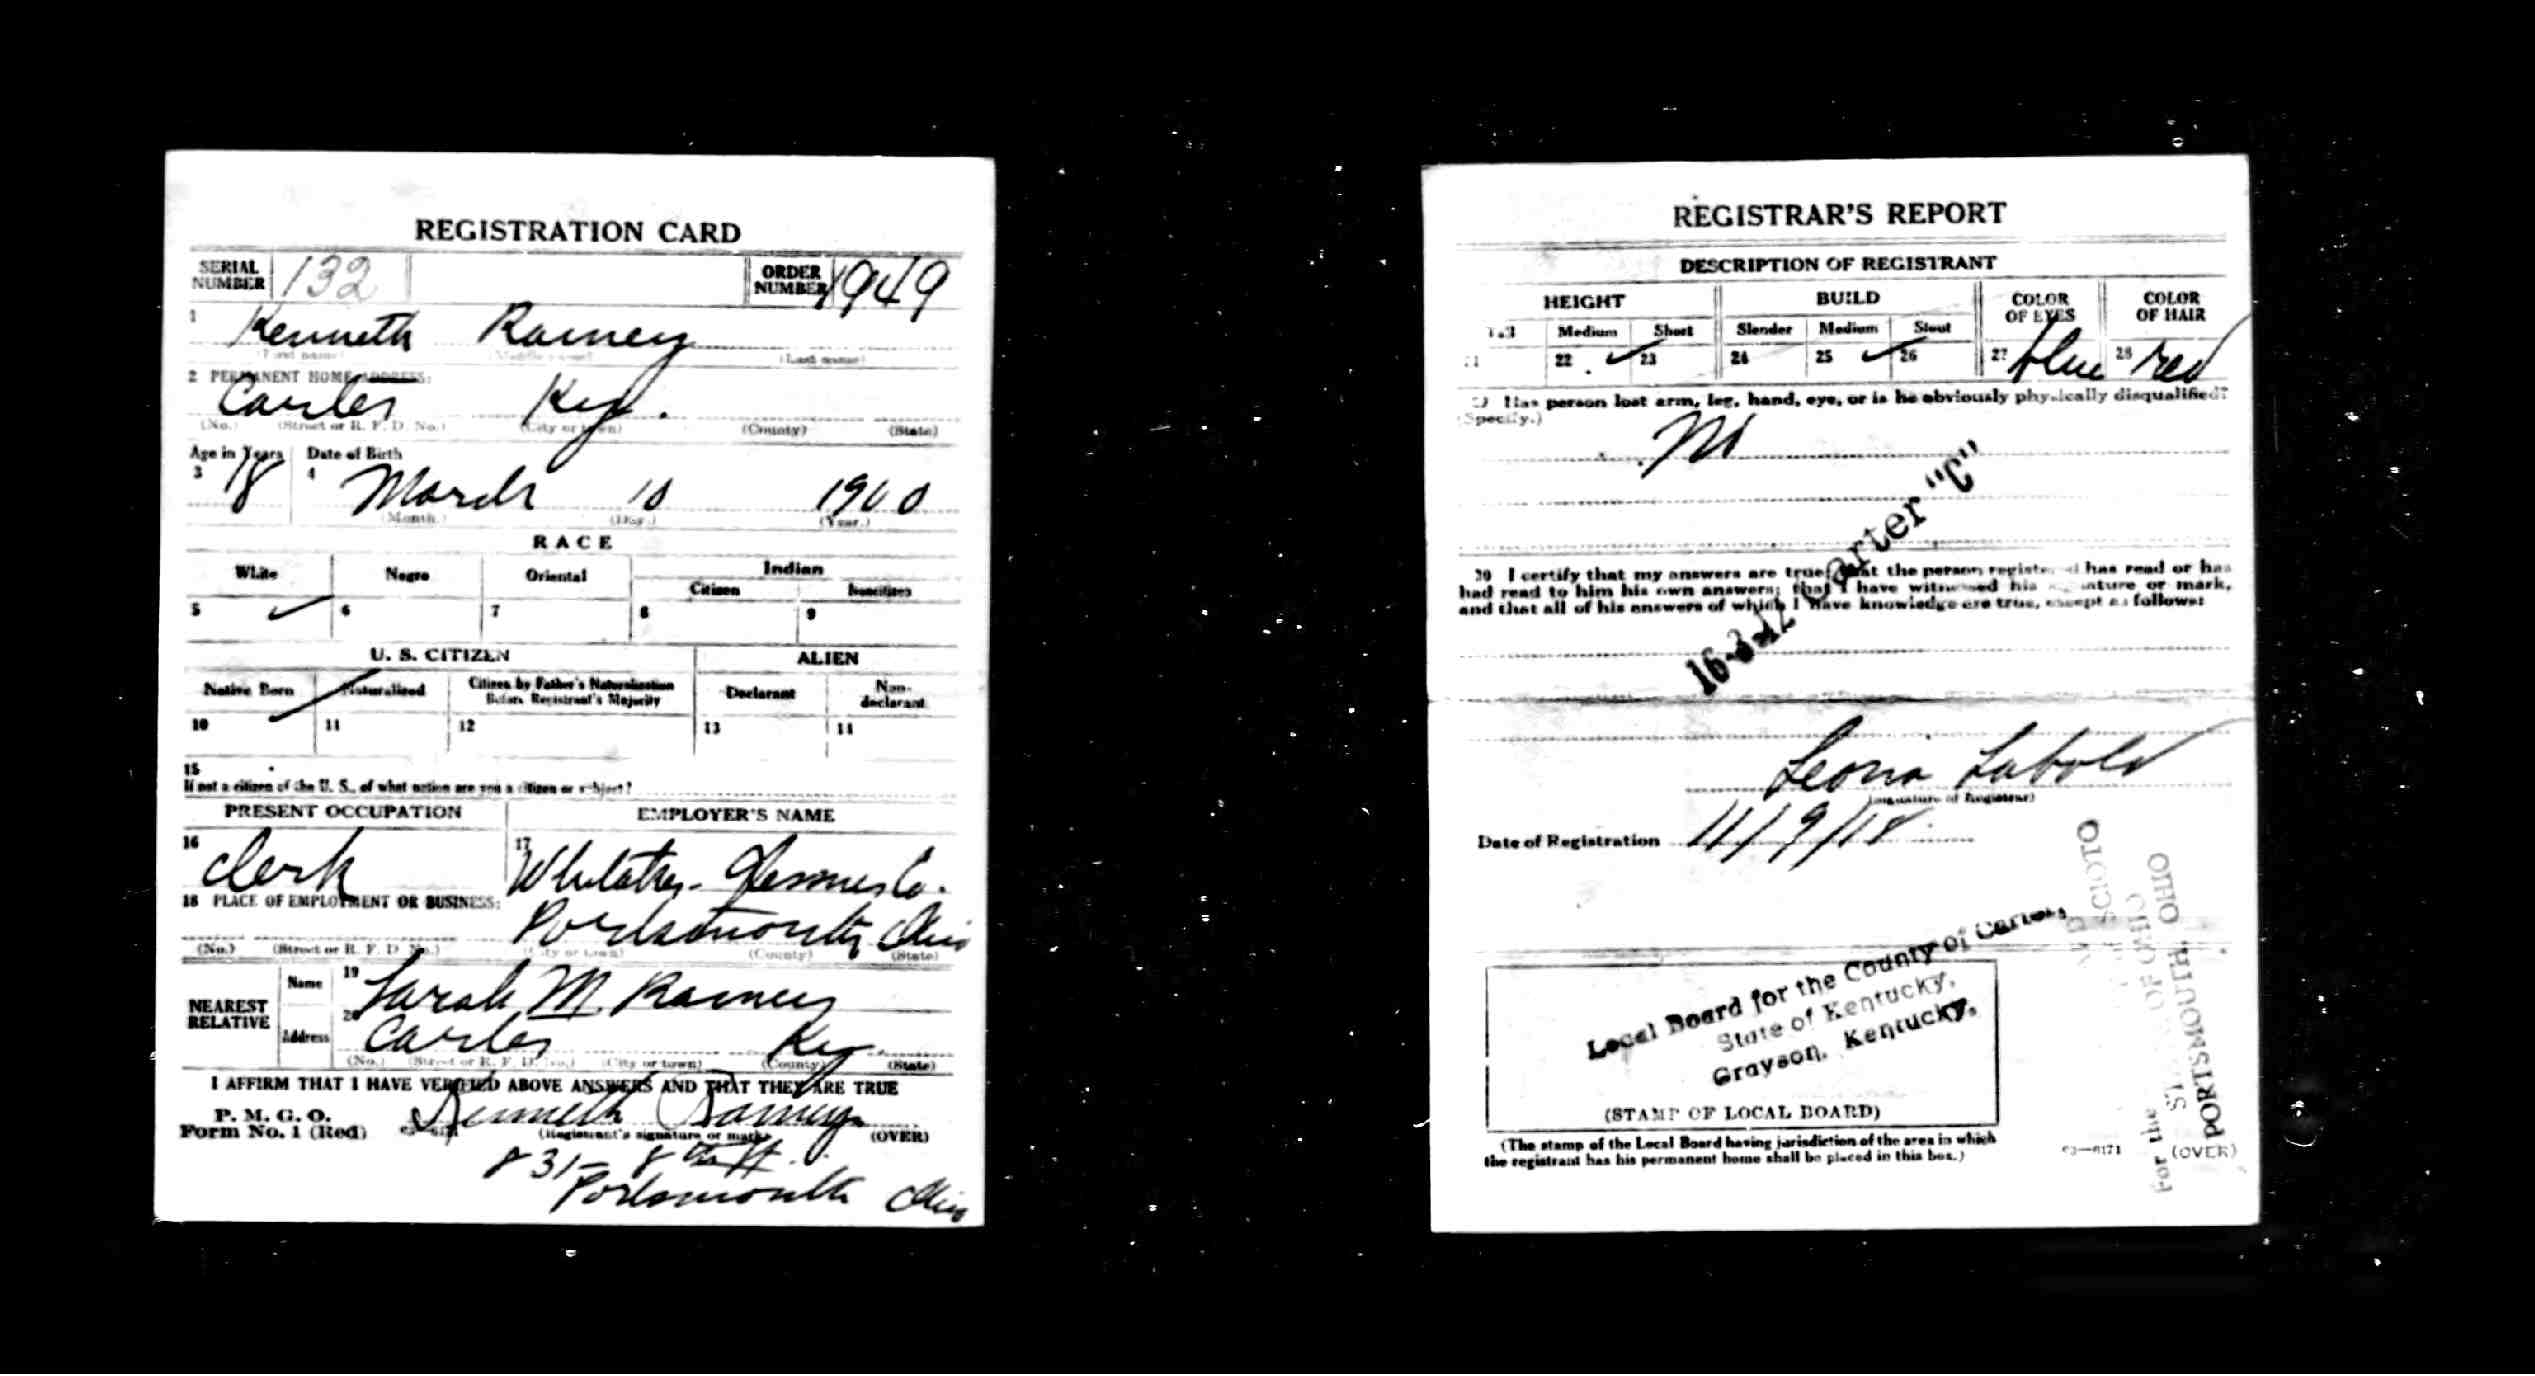 REGISTRATION CARD
SERIAL NUMBER 132 ORDER NUMBER 1949
1 Kenneth Ramey
(First name) (Middle name) (Last name)
2 PERMANENT HOME ADDRESS:
Carter Ky.
(No.) (Street or R. F. D. No.) (City or town) (County) (State)
Age in Years Date of Birth
3 18 4 March 10 1900
(Month.) (Day.) (Year.)
RACE
White Negro Oriental Indian
Citizen Noncitizen
5 6 7 8 9
U. S. CITIZEN ALIEN
Native Born Naturalized Citizen by Father's Naturalization Before Registrant's Majority Declarant Non-declarant
10 11 12 13 14
15
If not a citizen of the U. S., of what nation are you a citizen or subject?
PRESENT OCCUPATION EMPLOYER'S NAME
16 Clerk 17 Co.
18 PLACE OF EMPLOYMENT OR BUSINESS:
Portsmouth, Ohio
(No.) (Street or R. F. D. No.) (City or town) (County) (State)
NEAREST RELATIVE
Name 19 Sarah M Ramey
Address 20 Carter Ky.
(No.) (Street or R. F. D. No.) (City or town) (County) (State)
I AFFIRM THAT I HAVE VERIFIED ABOVE ANSWERS AND THAT THEY ARE TRUE
P. M. G. O.
Form No. 1 (Red) Kenneth Ramey
(Registrant's signature or mark) (OVER)
831- 8th St.
Portsmouth Ohio
REGISTRAR'S REPORT
DESCRIPTION OF REGISTRANT
HEIGHT BUILD COLOR OF EYES COLOR OF HAIR
Tall Medium Short Slender Medium Stout
21 22 23 24 25 26 27 blue 28 red
29 Has person lost arm, leg, hand, eye, or is he obviously physically disqualified?
(Specify.)
No
16-3-12 Carter "C"
30 I certify that my answers are true; that the person registered has read or has
had read to him his own answers; that I have witnessed his signature or mark,
and that all of his answers of which I have knowledge are true, except as follows:
Leona Labold
(Signature of Registrar)
Date of Registration 11/9/18
Local Board for the County of Carter,
State of Kentucky,
Grayson, Kentucky.
(STAMP OF LOCAL BOARD)
(The stamp of the Local Board having jurisdiction of the area in which
the registrant has his permanent home shall be placed in this box.)
03—6171 (OVER)
For the
SCIOTO
OF OHIO
PORTSMOUTH, OHIO